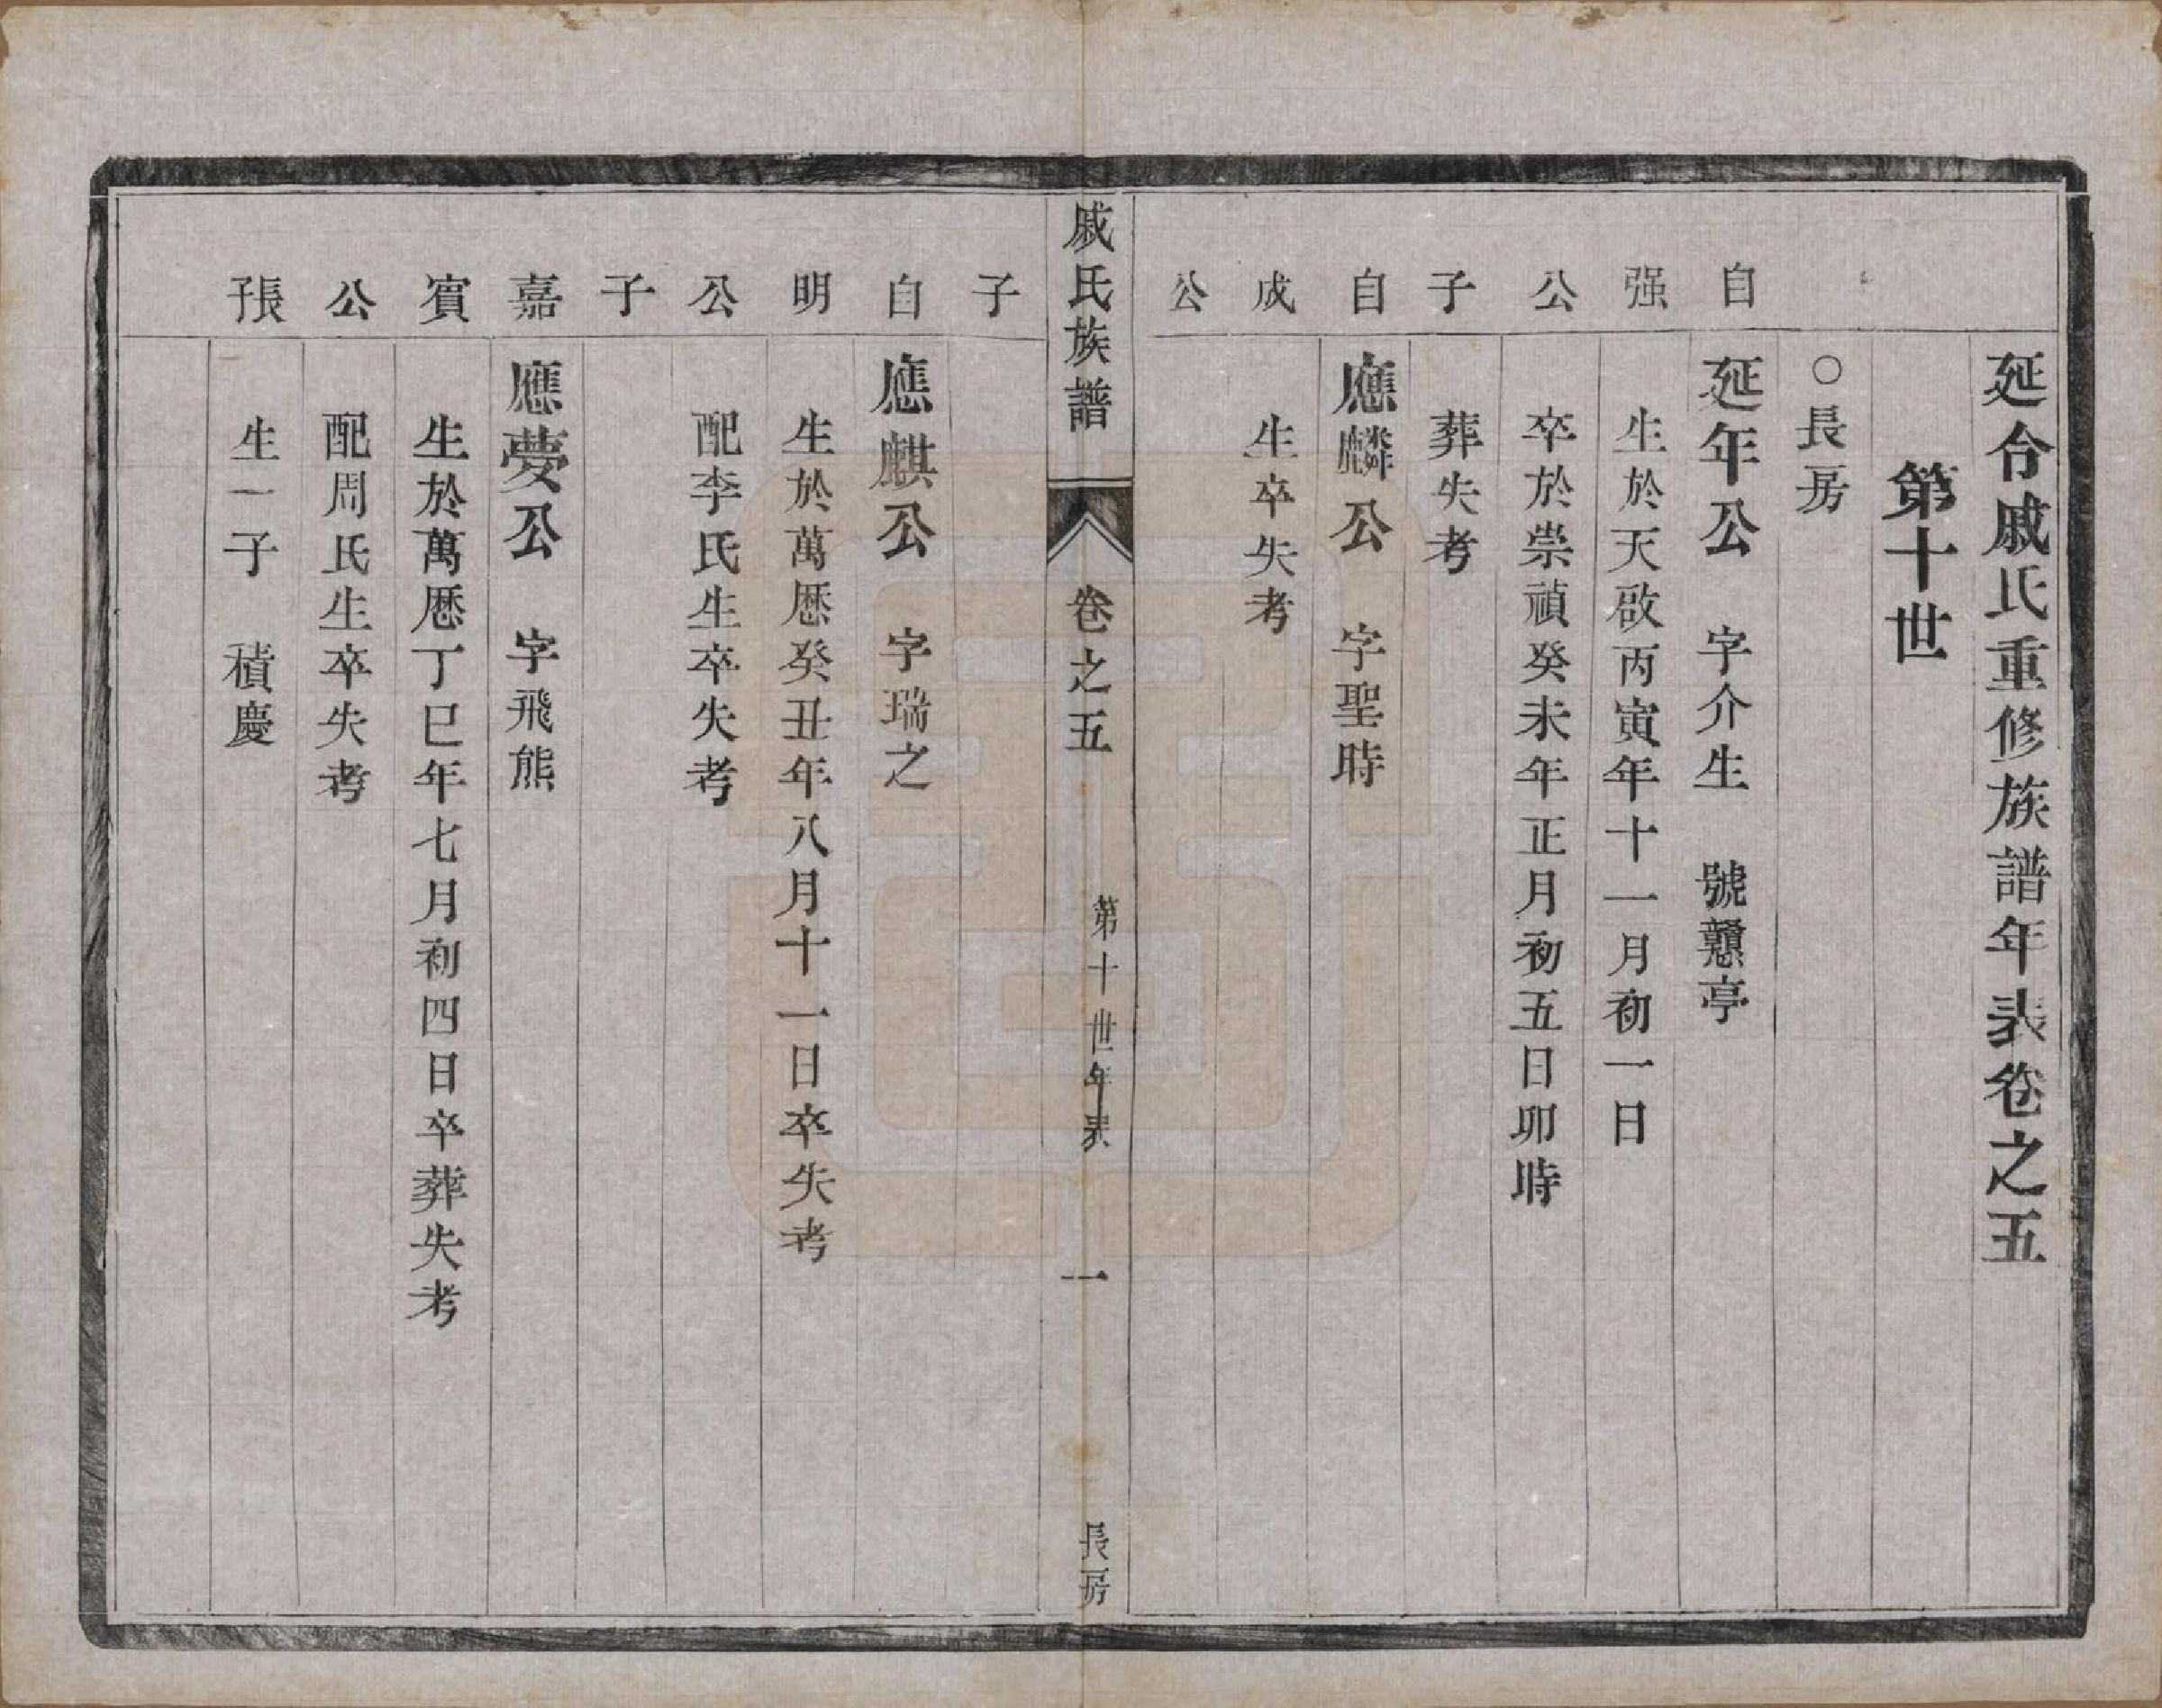 延令戚氏重修族譜年表卷之五
第十世
○長房
自 延年公 字介生 號戇亭
强 生於天啟丙寅年十一月初一日
公 卒於崇禎癸未年正月初五日卯時
子 葬失考
自 應麟公 字聖時
成 生卒失考
公
戚氏族譜 卷之五 第十世年表 一 長房
子
自 應麒公 字瑞之
明 生於萬曆癸丑年八月十一日卒失考
公 配李氏生卒失考
子
嘉 應夢公 字飛熊
賓 生於萬曆丁巳年七月初四日卒葬失考
公 配周氏生卒失考
長子 生一子 積慶